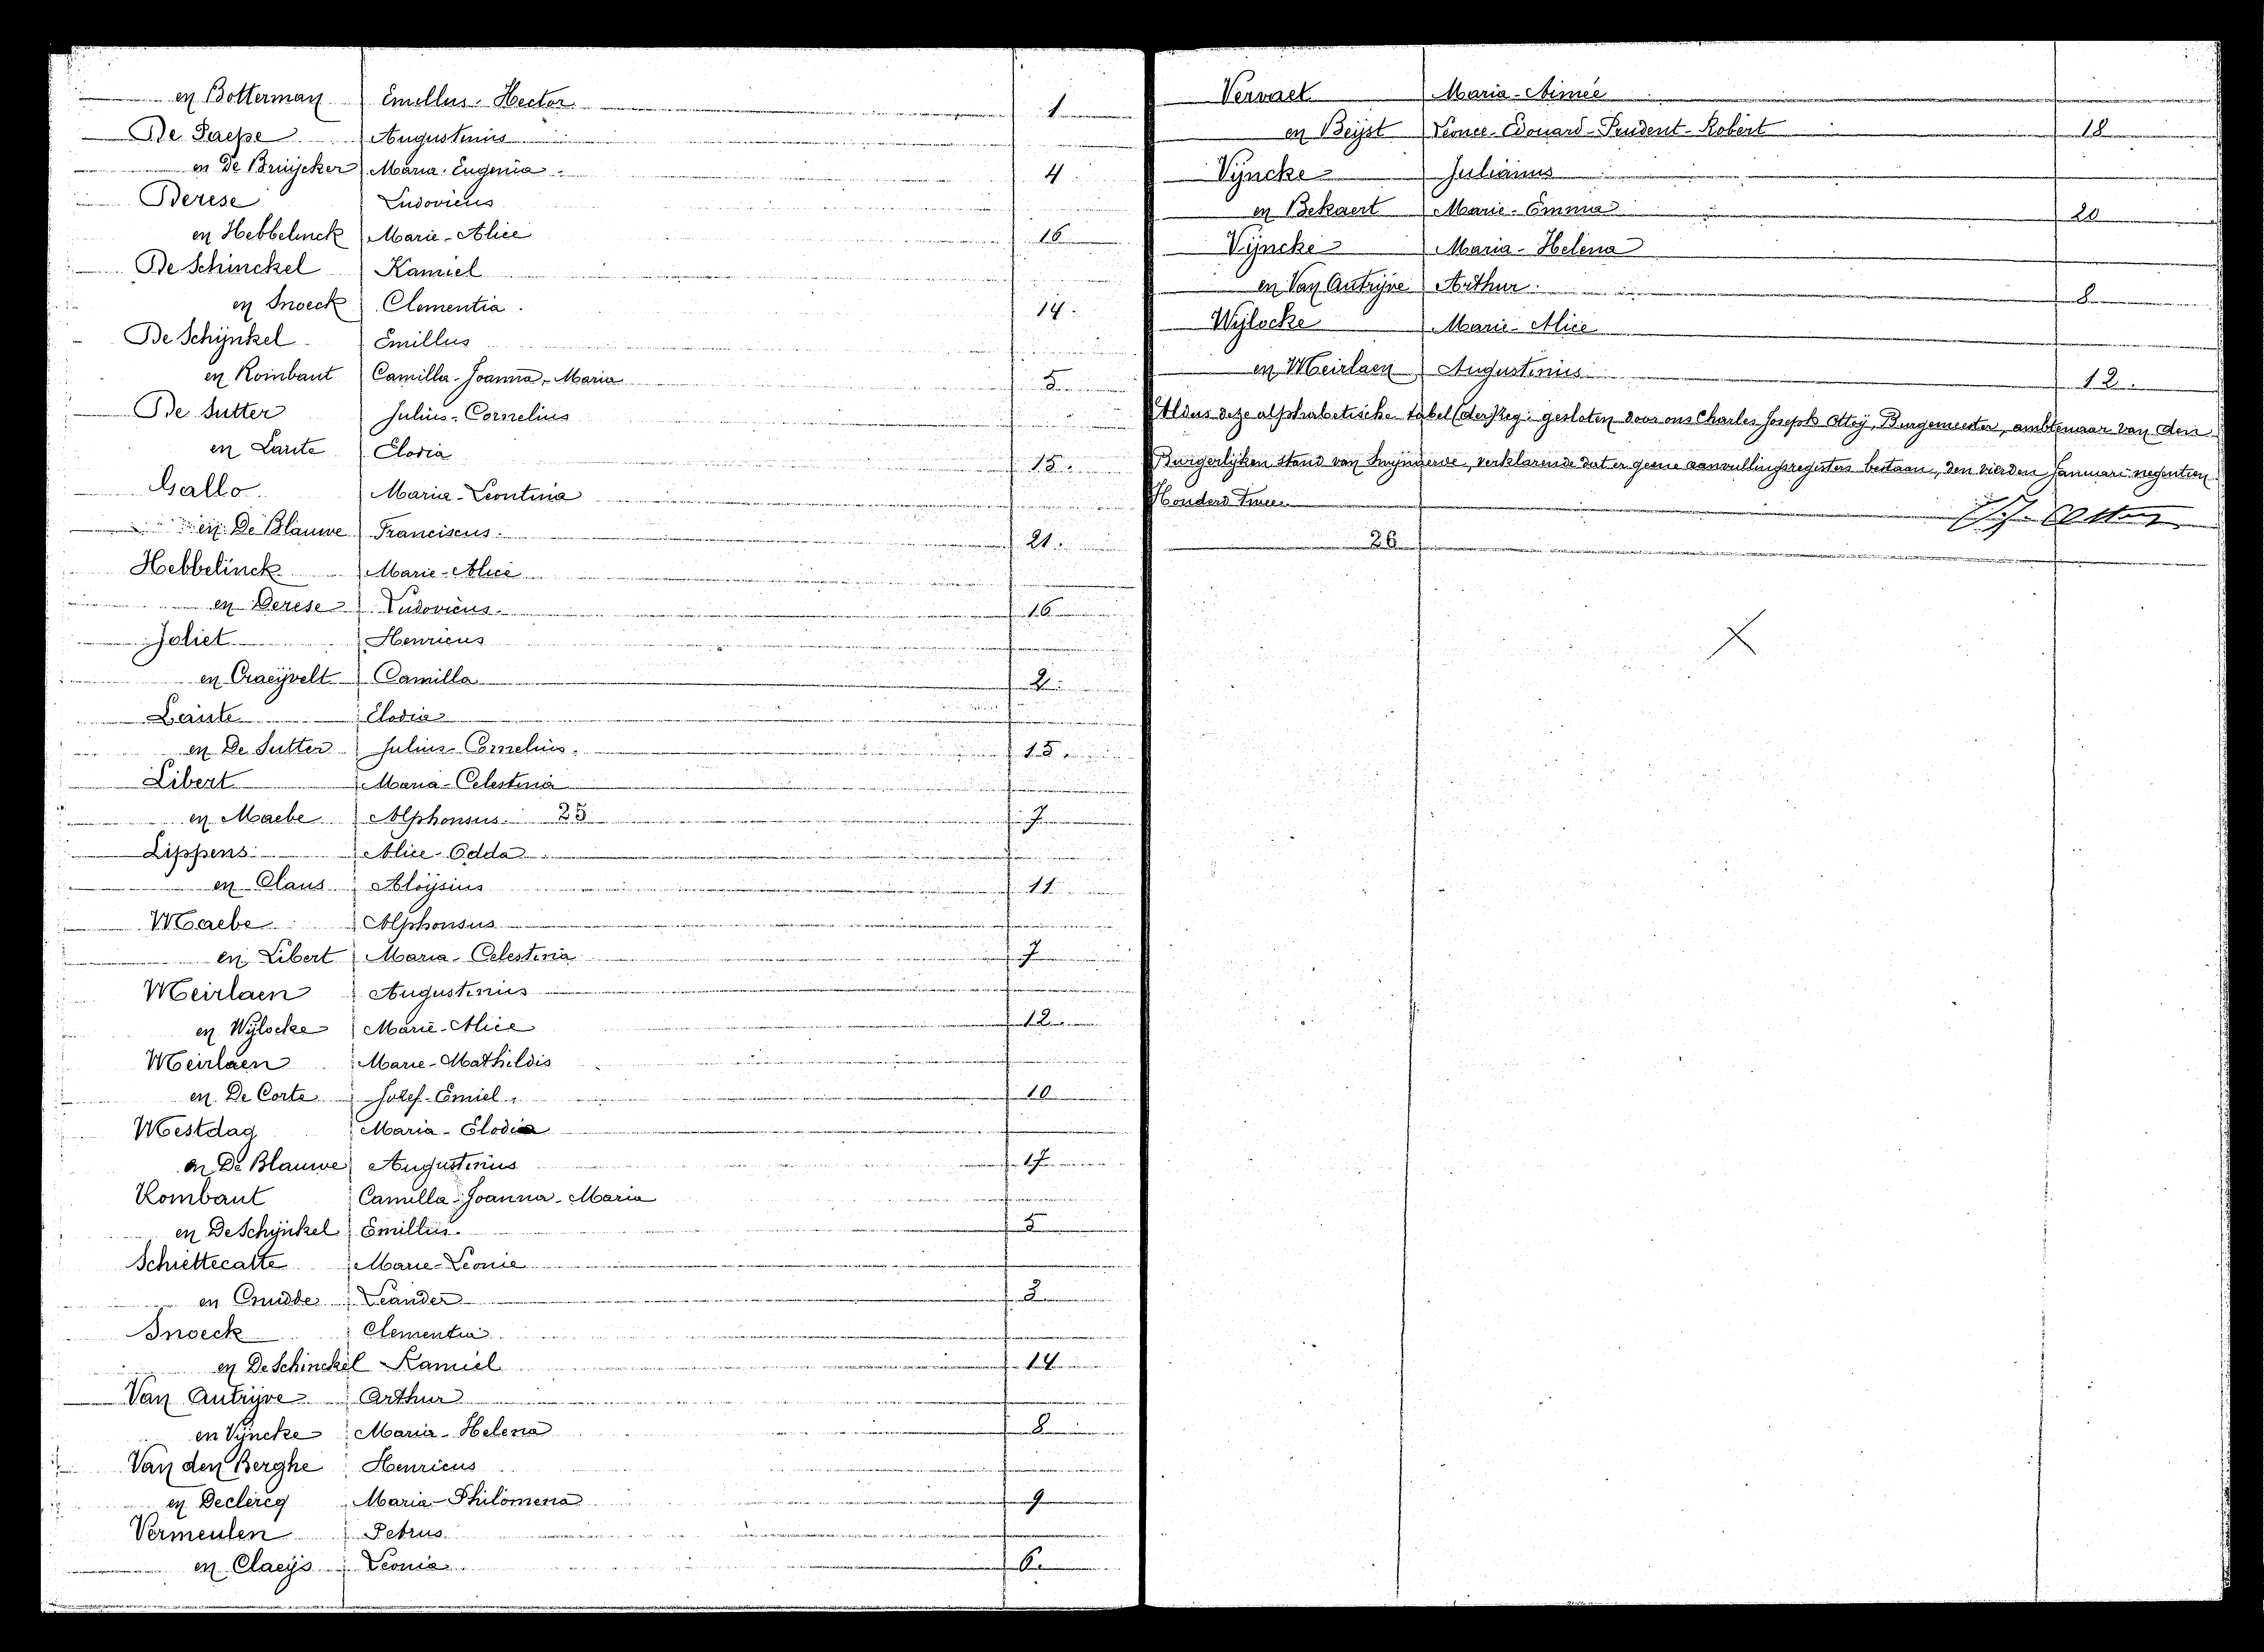 en Botterman Emillus-Hector 1
De Paepe Augustinus
en De Bruijcker Maria-Eugenia 4
Derese Ludovicus
en Hebbelinck Marie-Alice 16
De Schinckel Kamiel
en Snoeck Clementia 14.
De Schijnkel Emillus
en Rombaut Camilla-Joanna-Maria 5
De Sutter Julius-Cornelius
en Laute Elodia 15.
Gallo Maria-Leontina
en De Blauwe Franciscus. 21.
Hebbelinck Marie-Alice
en Derese Ludovicus. 16
Joliet Henricus
en Craeijvelt Camilla 2.
Laute Elodia
en De Sutter Julius-Cornelius. 15.
Libert Maria-Celestina
en Maebe Alphonsus. 25 7
Lippens Alice-Odda
en Claus Aloijsius 11
Maebe Alphonsus
en Libert Maria-Celestina 7
Meirlaen Augustinus
en Wijlocke Marie-Alice 12
Meirlaen Marie-Mathildis
en De Corte Jozef-Emiel. 10
Mestdag Maria-Elodia
en De Blauwe Augustinus 17
Rombaut Camilla-Joanna-Maria
en De Schijnkel Emillus. 5
Schiettecatte Marie-Leonie
en Cnudde Leander 3
Snoeck Clementia
en De Schinckel Kamiel 14
Van Autrijve Arthur
en Vijncke Maria-Helena 8
Van den Berghe Henricus
en Declercq Maria-Philomena 9
Vermeulen Petrus
en Claeijs Leonia 6.
Vervaet Maria-Aimée
en Beijst Léonce-Edouard-Prudent-Robert 18
Vijncke Julianus
en Bekaert Marie-Emma 20
Vijncke Maria-Helena
en Van Autrijve Arthur. 8
Wijlocke Marie-Alice
en Meirlaen Augustinus 12.
Aldus deze alphabetische tabel (der) Reg. gesloten door ons Charles Joseph Ottoij, Burgemeester, ambtenaar van den
Burgerlijken stand van Swijnaerde, verklarende dat er geene aanvullingsregisters bestaan, den vierden Januari negentien
Honderd Twee.
26